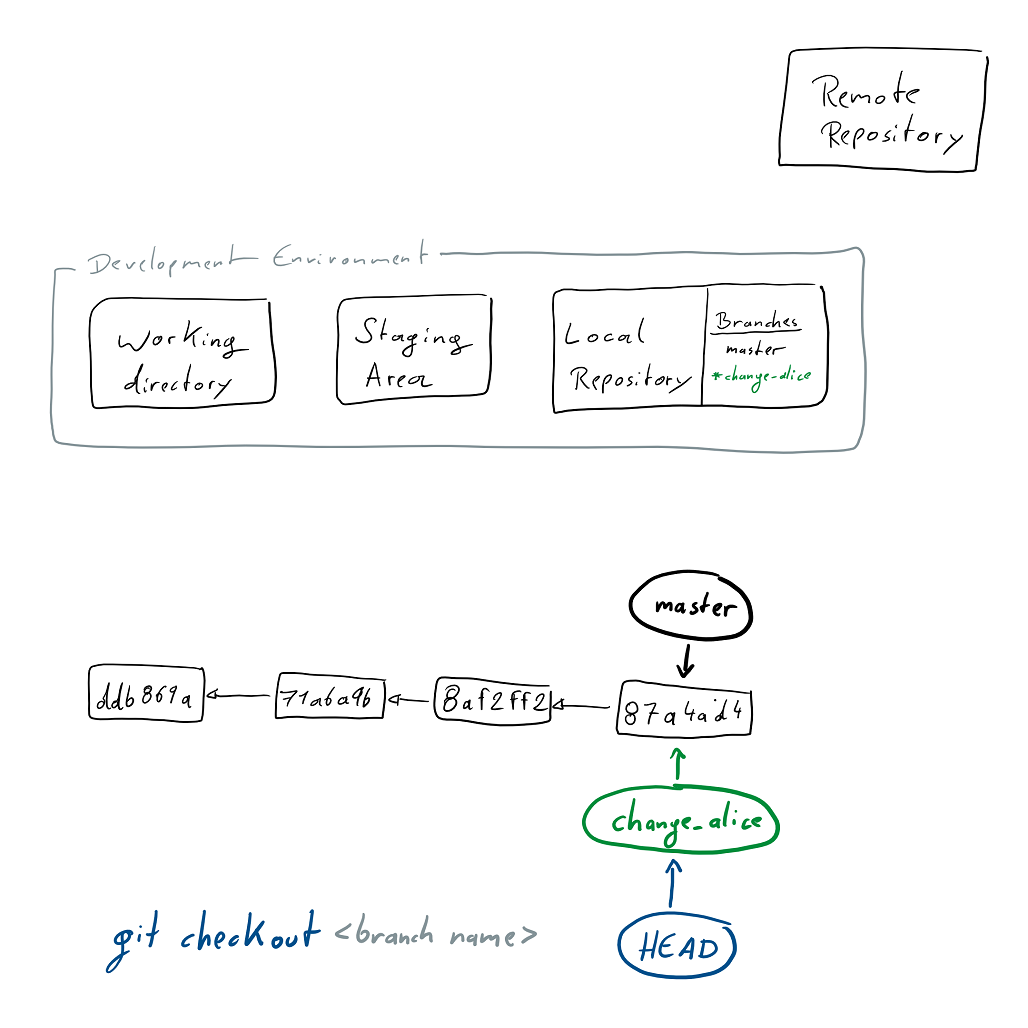 Remote
Repository
Development Environment
Working
directory
Staging
Area
Local
Repository
Branches
master
*change-alice
master
ddb869a
71a6a96
8af2ff2
87a4ad4
change_alice
git checkout <branch name>
HEAD